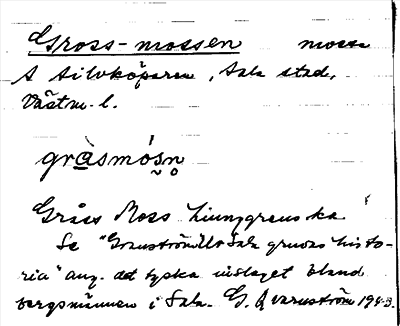 Gross-mossen mosse
A Silvköparen, Sala stad,
Västm. l.
gràsmósn
Gråss Moss Ljunggrens ka
Se "Granströms Sala gruvas histo-
ria" ang. det tyska inslaget bland
bergsmännen i Sala. G. Qvarnström 1943.